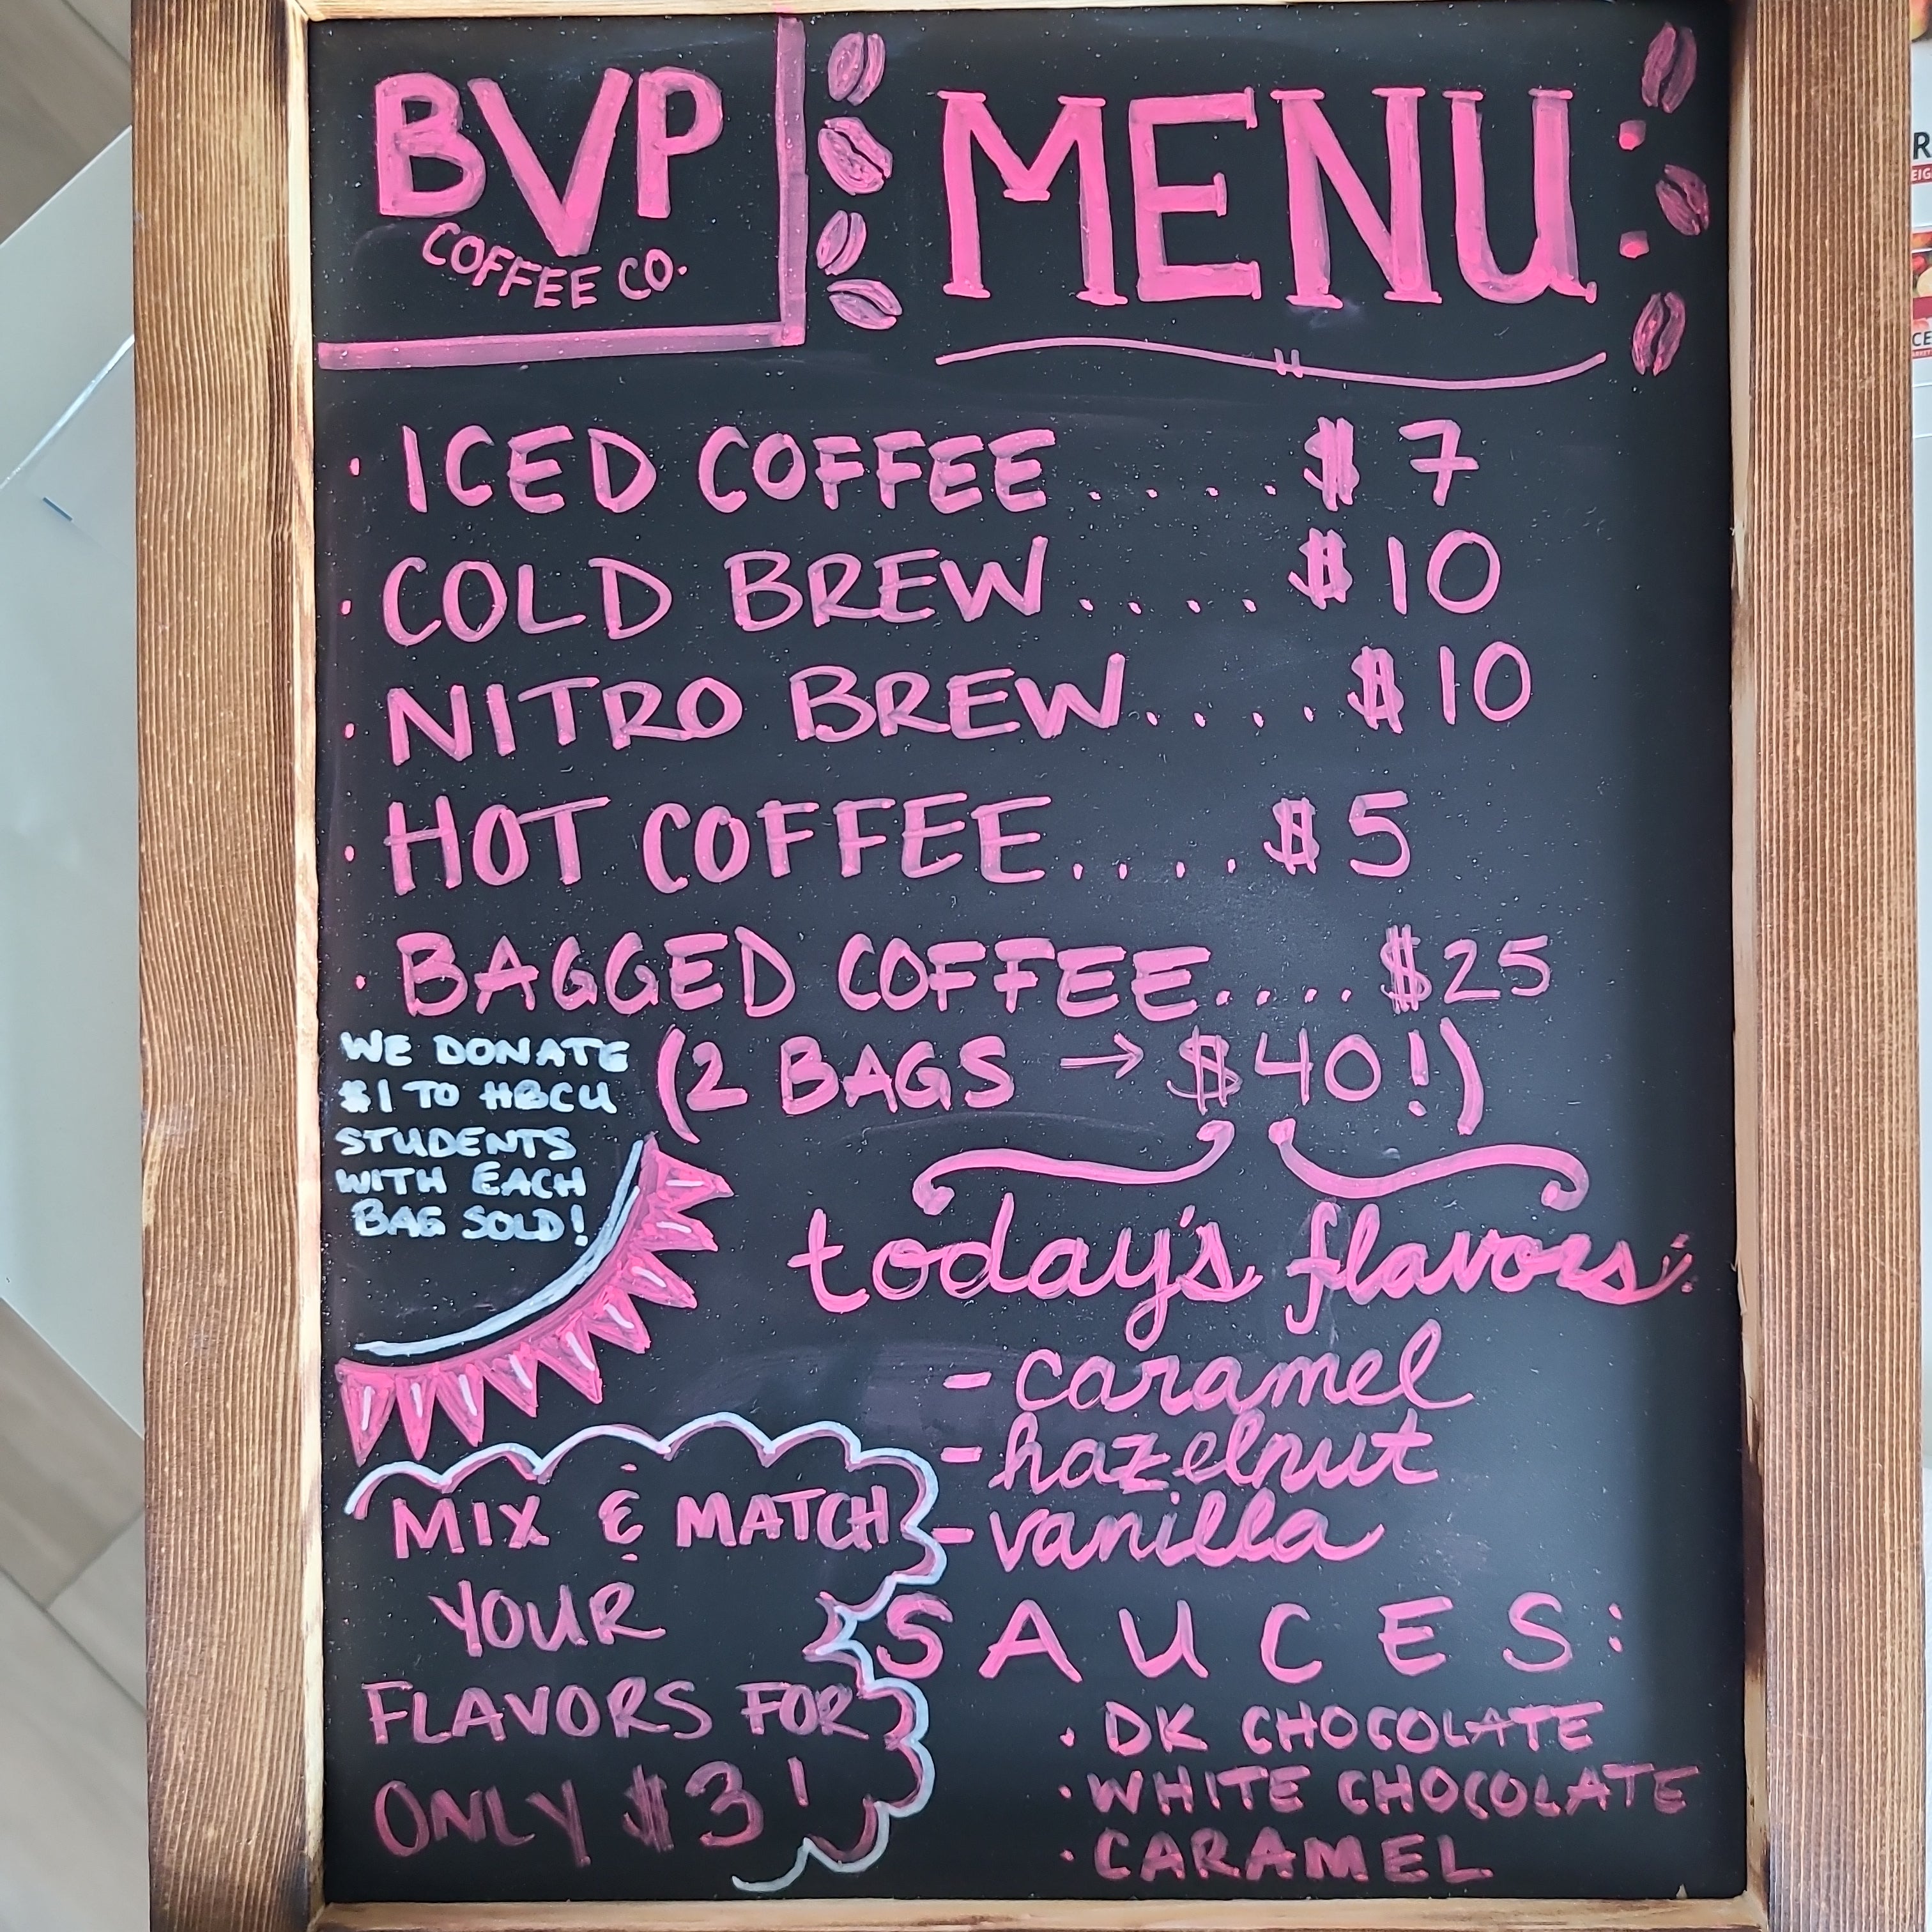 BVP
COFFEE CO.
MENU
· ICED COFFEE .... $7
· COLD BREW .... $10
· NITRO BREW .... $10
· HOT COFFEE .... $5
· BAGGED COFFEE .... $25
(2 BAGS → $40!)
WE DONATE
$1 TO HBCU
STUDENTS
WITH EACH
BAG SOLD!
today's flavors:
- caramel
- hazelnut
- vanilla
MIX & MATCH
YOUR
FLAVORS FOR
ONLY $3!
SAUCES:
· DK CHOCOLATE
· WHITE CHOCOLATE
· CARAMEL